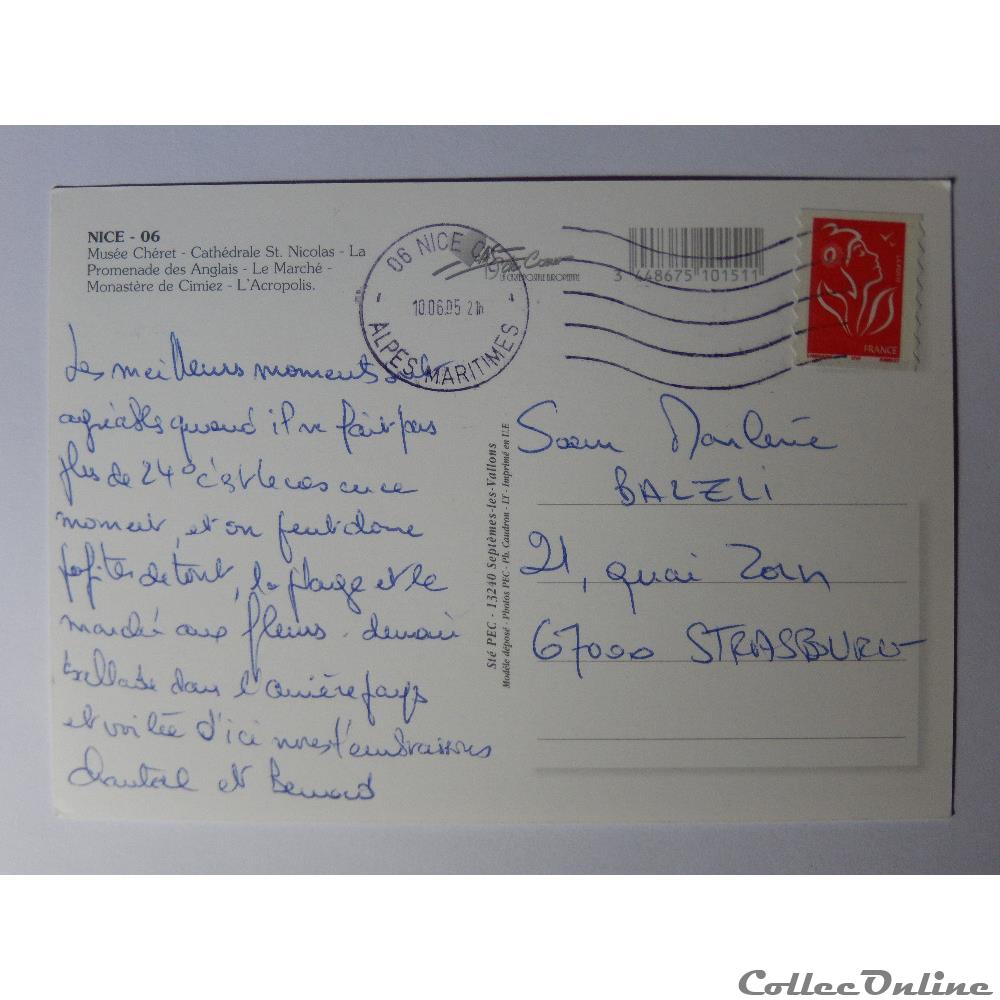 NICE - 06
Musée Chéret - Cathédrale St. Nicolas - La
Promenade des Anglais - Le Marché -
Monastère de Cimiez - L'Acropolis.
06 NICE
10.06.05 21h
ALPES MARITIMES
LA CARTE POSTALE EUROPEENNE
3 448675 101511
LETTRE 20g
FRANCE
Les meilleurs moments
agréables quand il ne fait pas
plus de 24° c'est le cas en ce
moment, et on peut donc
profiter de tout, la plage et le
marché aux fleurs. demain
ballade dans l'arrière pays
et d'ici nous t'embrassons
Chantal et Bernard
Sté PEC - 13240 Septèmes-les-Vallons
Modèle déposé - Photos PEC - Ph. Caudron - LT - Imprimé en U.E
Soeur Marlène
BALZLI
21, quai Zorn
67000 STRASBOURG
CollecOnline